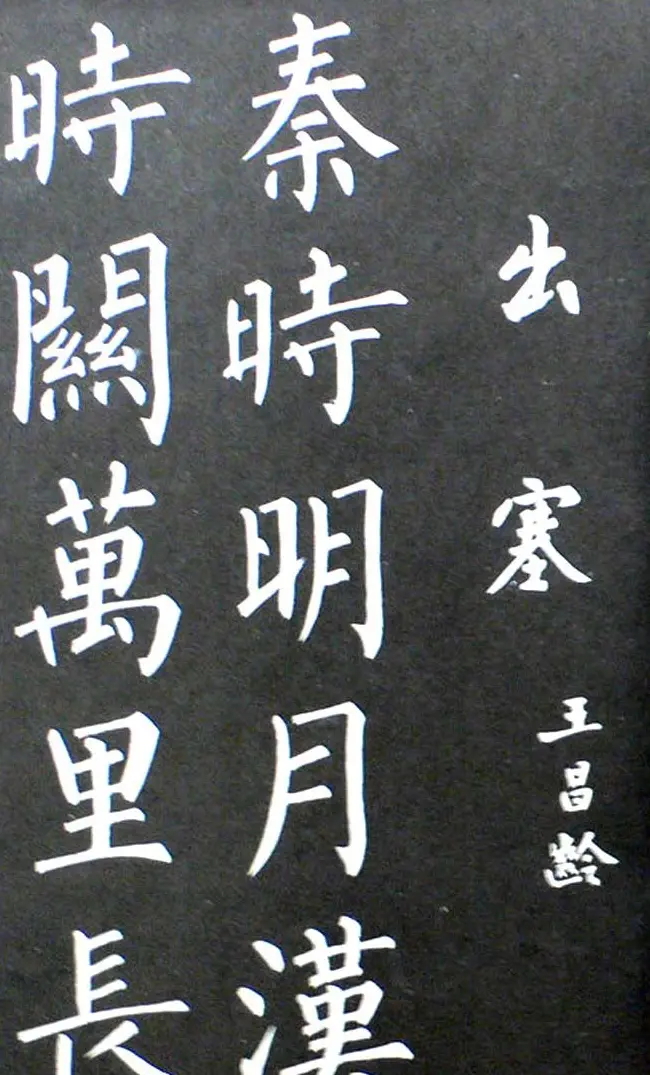 出塞
王昌齡
秦時明月漢
時關萬里長